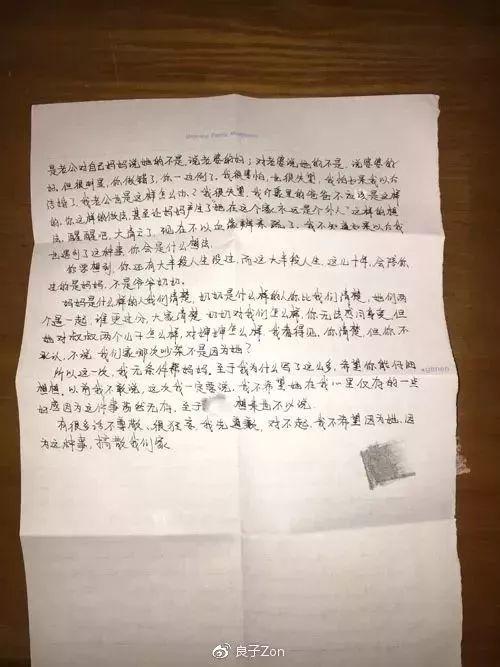 是老公对自己妈妈说她的不是,说老婆的好;对老婆说她的不是,说婆婆的
好,但很明显,你做错了,你一边倒了,我很害怕,也很失望,我怕如果我以后
结婚了,我老公也是这样怎么办?我很失望,我印象里的爸爸不应该是这样
的,你这样的做法,甚至让妈妈产生了她在这个家永远是个外人"这样的想
法,醒醒吧,大清亡了,现在不以血缘辨亲疏了,我不知道如果以后我
也遇到了这种事,你会是什么想法
你要想到,你还有大半段人生没过,而这大半段人生,这几十年,会陪你
过的是妈妈,不是爷爷奶奶.
妈妈是什么样的人我们清楚,奶奶是什么样的人你比我们清楚,她们两
个遇一起,谁更过分,大家清楚 奶奶对我们怎么样,你无法感同身受,但
她对叔叔两个儿子怎么样,对婶婶怎么样,我看得见,你清楚,但你不
承认,不说,我们家哪次吵架不是因为她?
所以这一次,我无条件帮妈妈,至于我为什么写了这么多,希望你能仔细
想想,以前我不敢说,这次我一定要说,我不希望她在我心里仅有的一点
好感因为这件事荡然无存,至于 想来也不必说
有很多话不尊敬、很狂妄,我先道歉,对不起,我不希望因为她、因
为这种事,搞散我们家
良子Zon